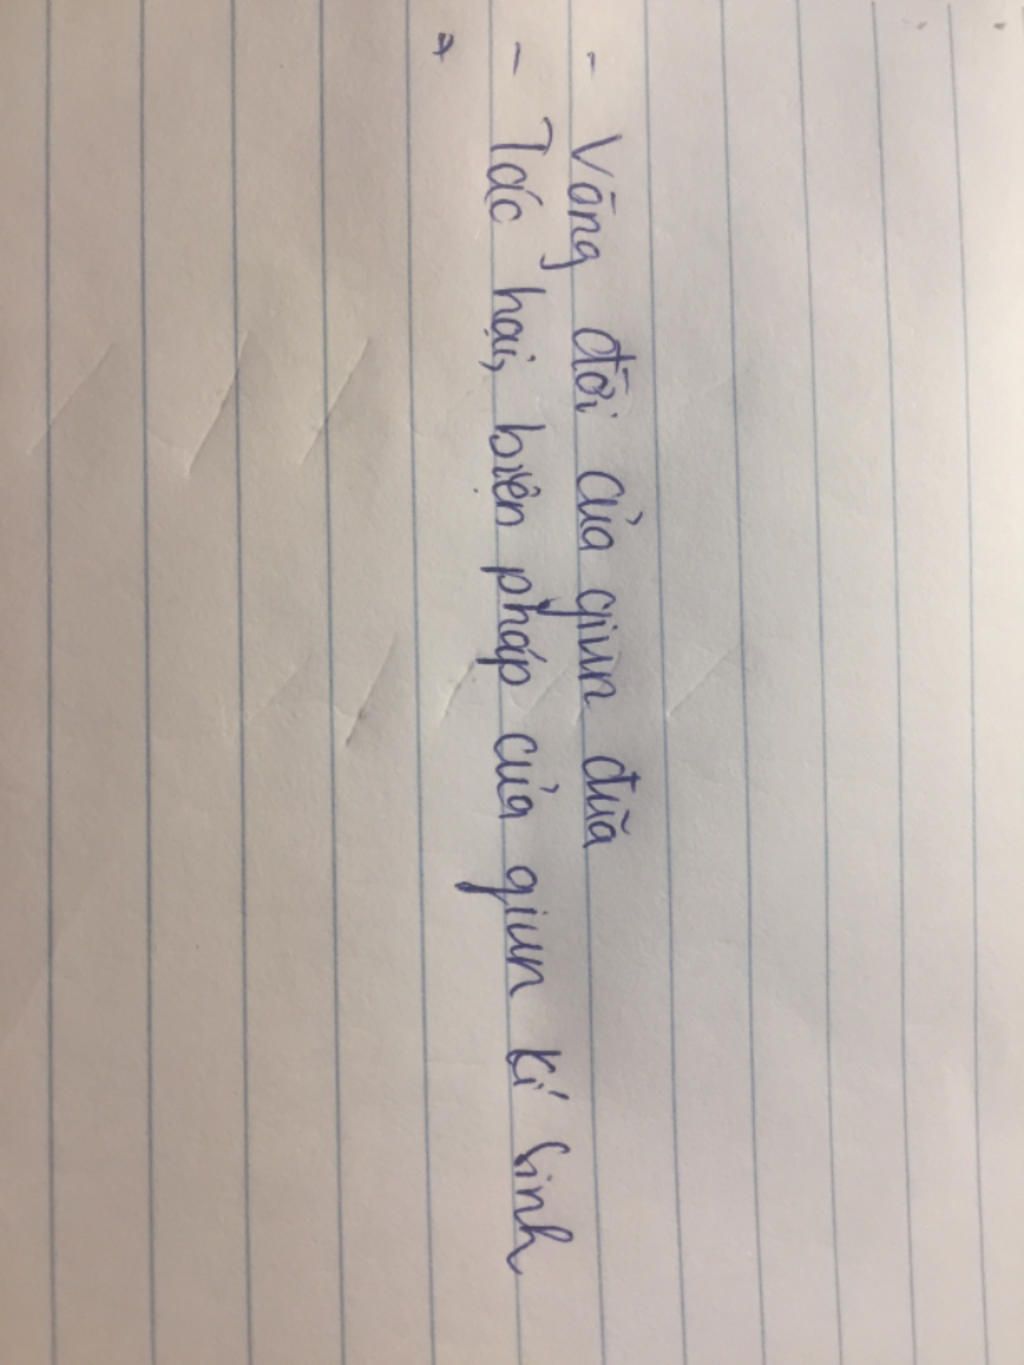 - Vòng đời của giun đũa
- Tác hại, biện pháp của giun kí sinh